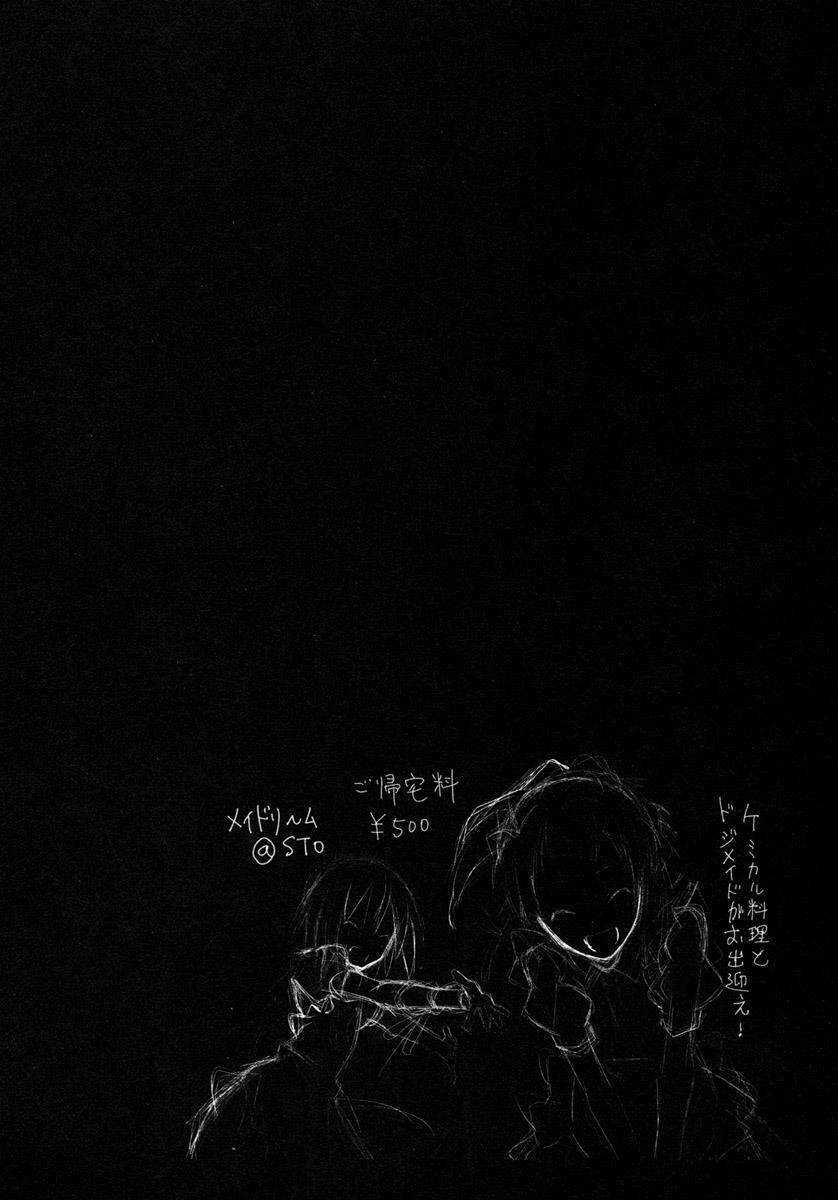 ケミカル料理と
ドジメイドがお出迎え!
ご帰宅料
¥500
メイドリ〜ム
@STO